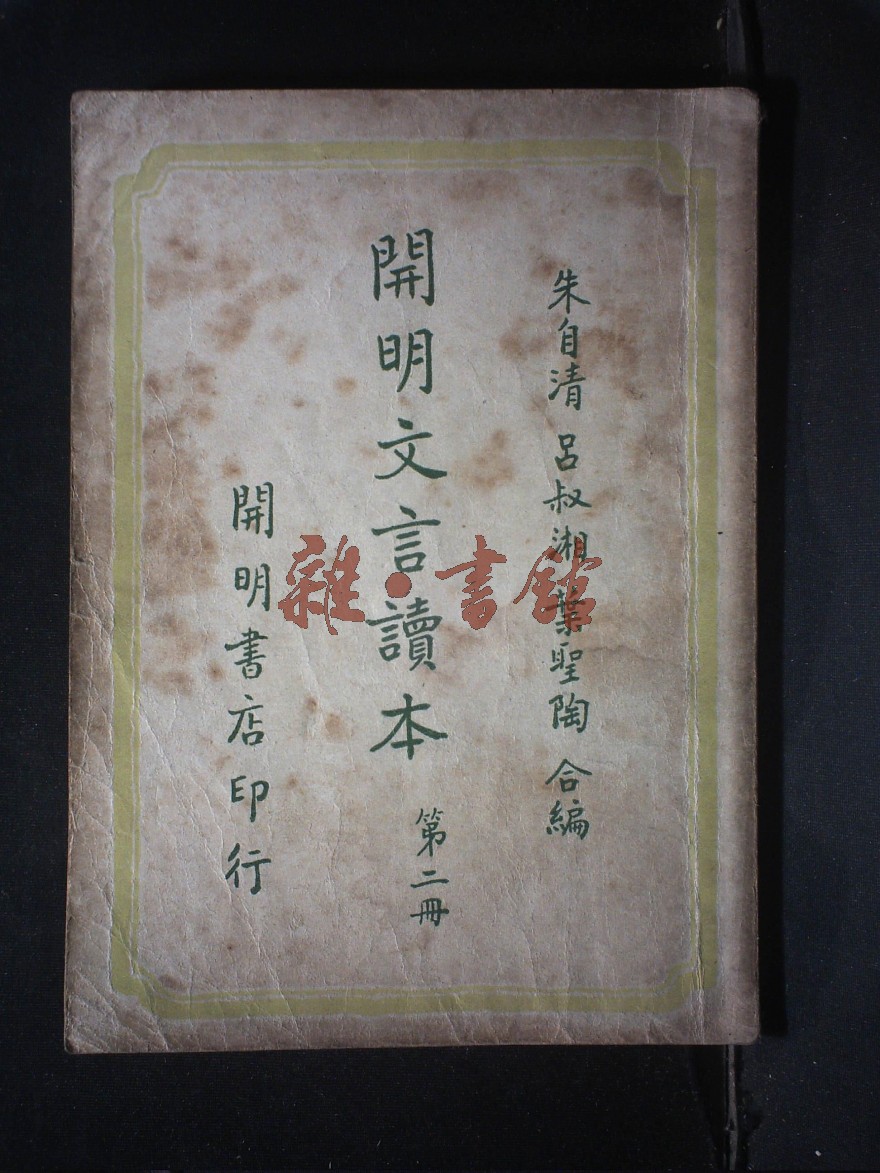 朱自清 呂叔湘 葉聖陶 合編
開明文言讀本
第二冊
開明書店印行
雜·書館